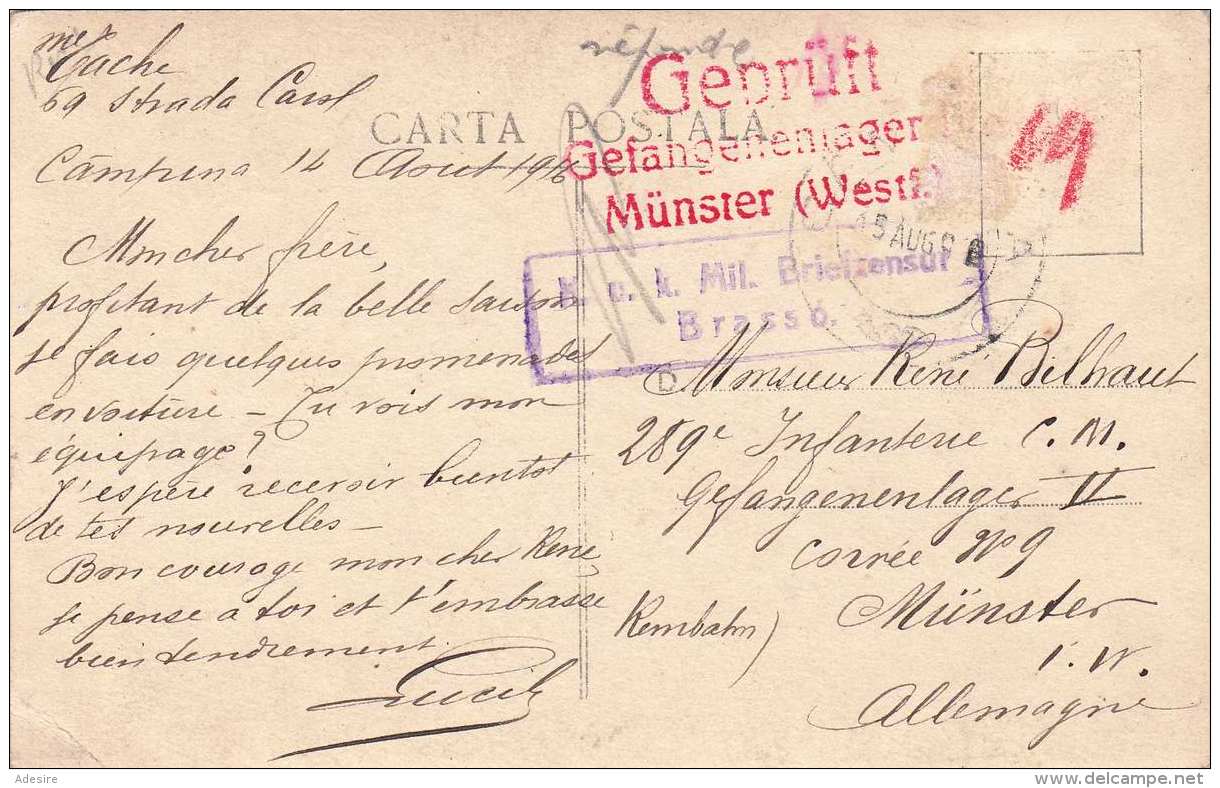 Mme Cache
69 Strada Carol
Campina 14 Aout 1916
Mon cher frère,
profitant de la belle saison
je fais quelques promenades
en voiture - Tu vois mon
équipage?
J'espère recevoir bientot
de tes nouvelles -
Bon courage mon cher René
je pense a toi et t'embrasse
bien tendrement.
Lucile
réponde
CARTA POSTALA
Geprüft
Gefangenenlager
Münster (Westf.)
K. u. k. Mil. Briefzensur
Brassó.
15 AUG
D
Monsieur René Bilhaut
289e Infanterie C. M.
Gefangenenlager II
Corvée No 9
Münster
i. W.
Allemagne
Rembahn)
Adesire
delcampe.net